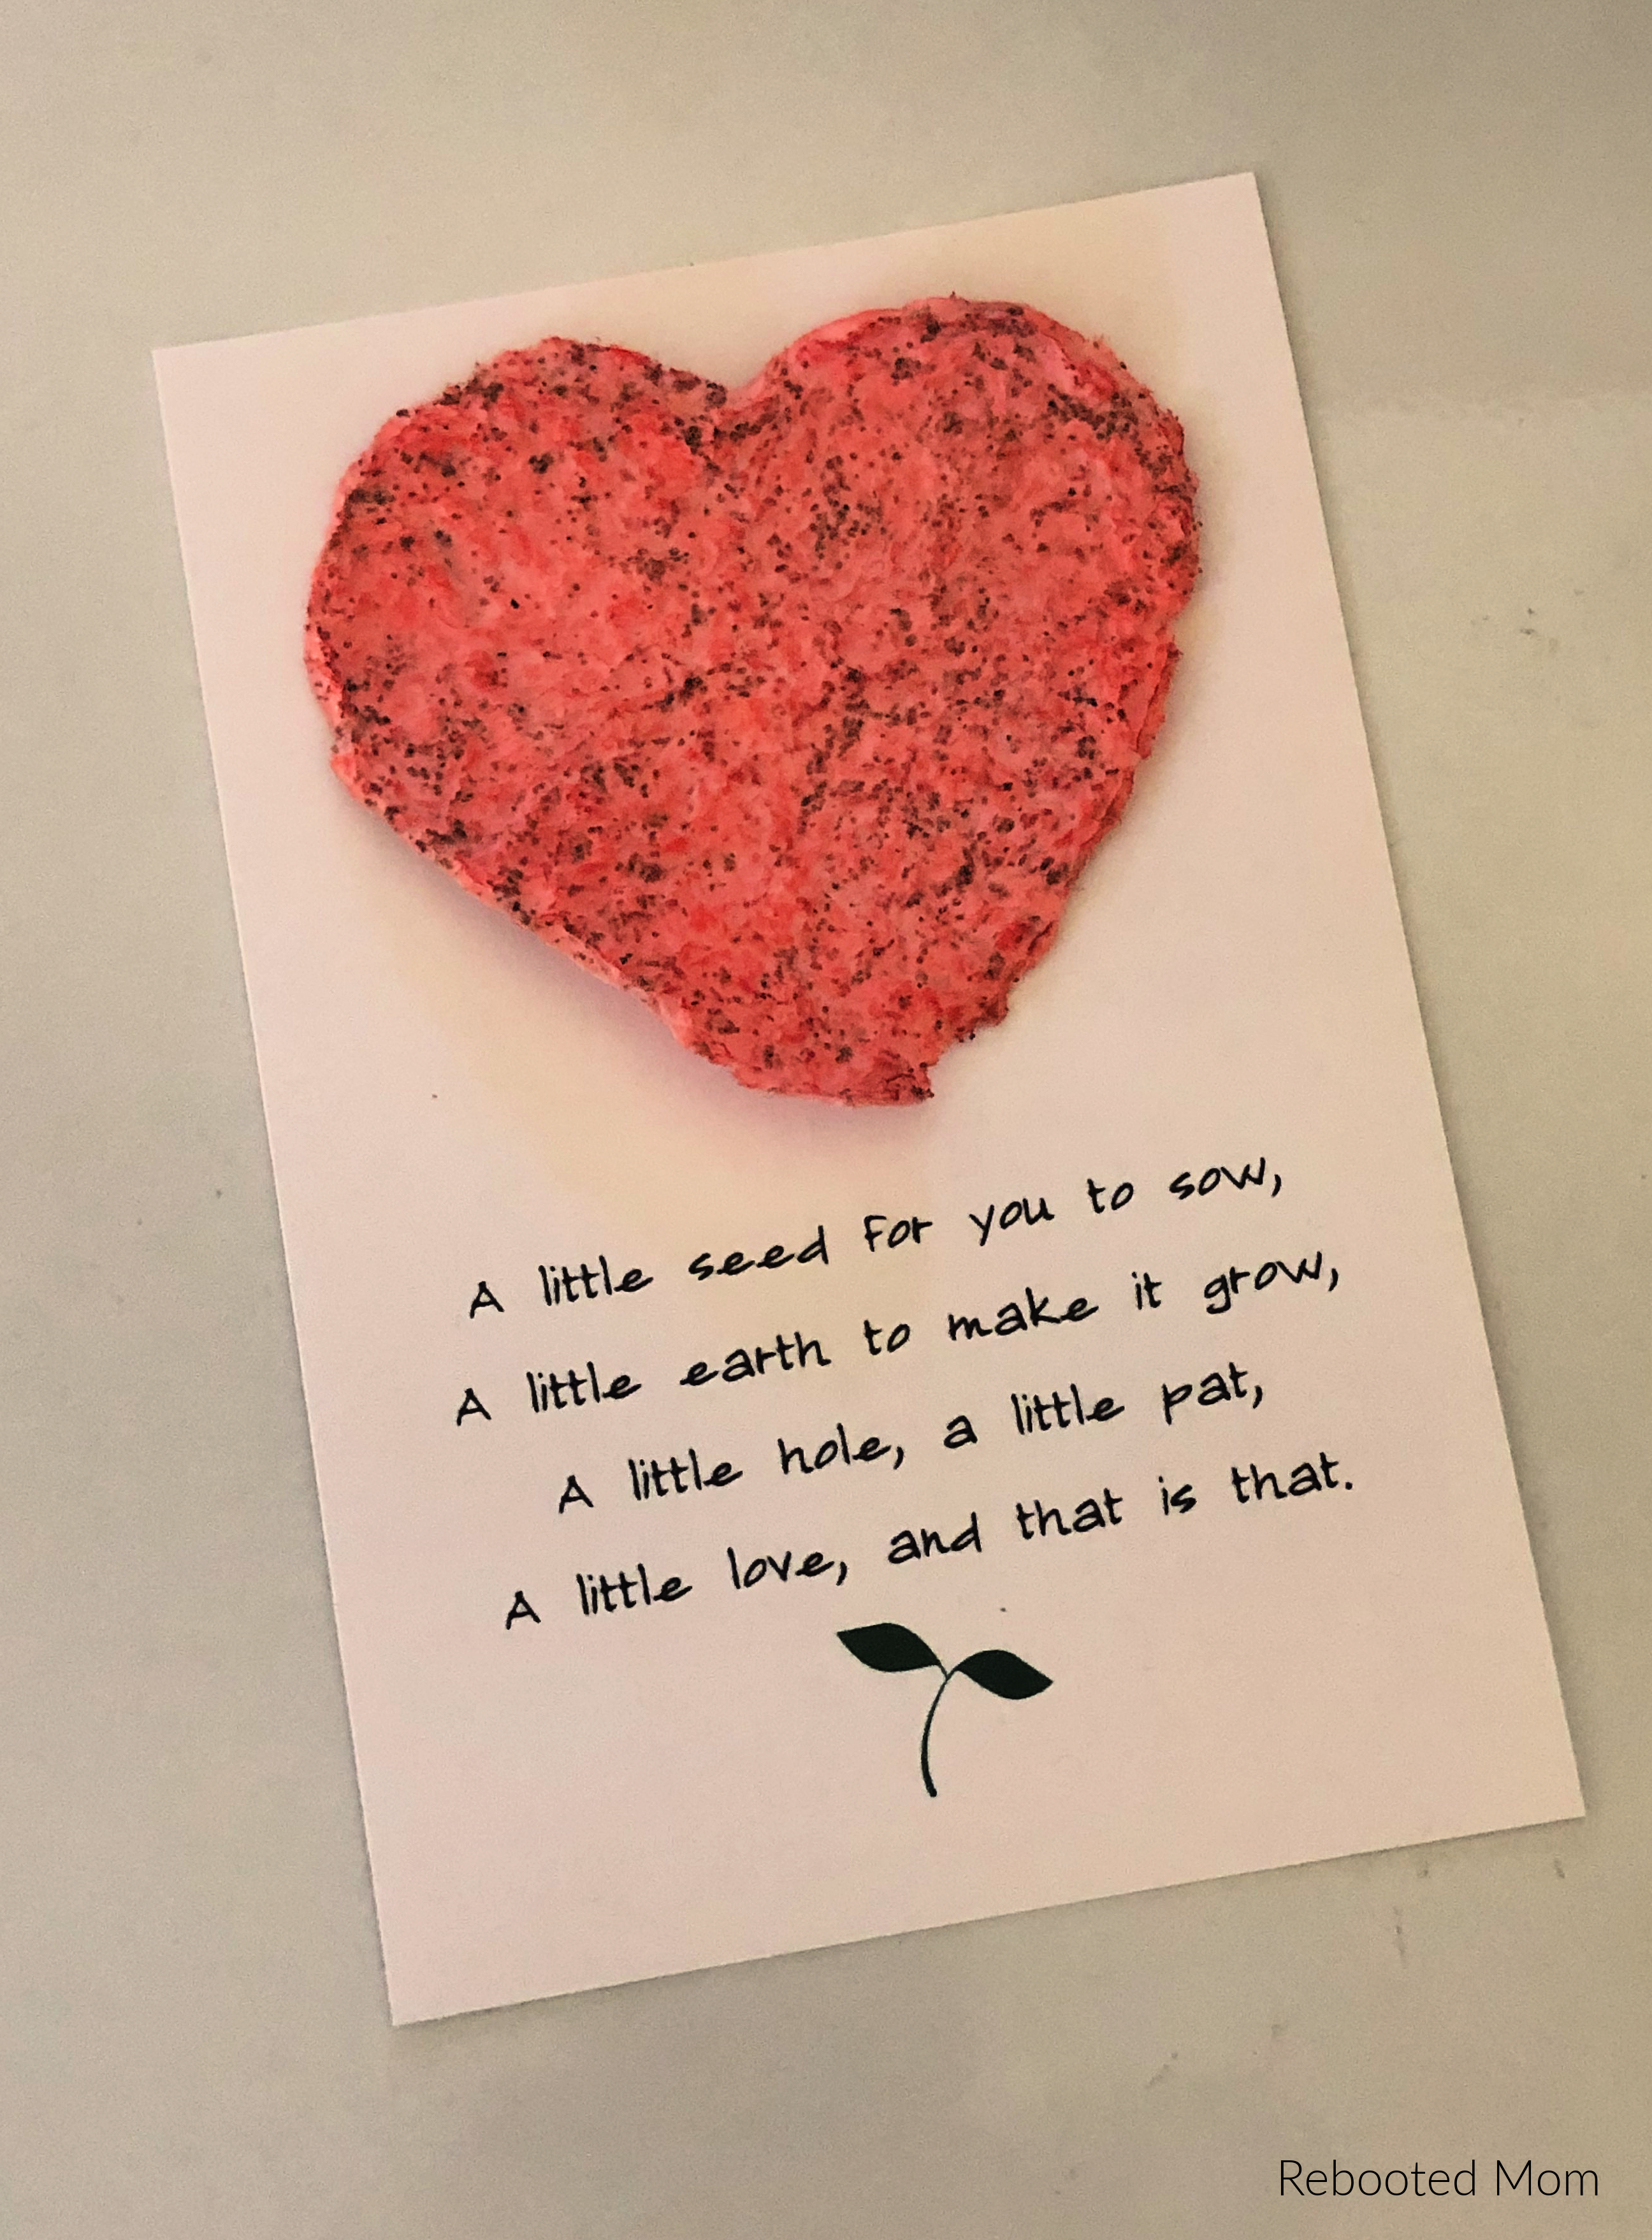 A little seed for you to sow,
A little earth to make it grow,
A little hole, a little pat,
A little love, and that is that.
Rebooted Mom